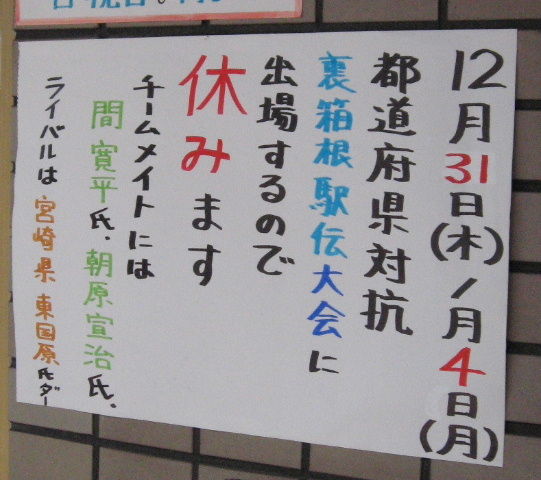 12月31日(木)/月4日(月)
都道府県対抗
裏箱根駅伝大会に
出場するので
休みます
チームメイトには
間寛平氏、朝原宣治氏、
ライバルは宮崎県東国原氏ダー